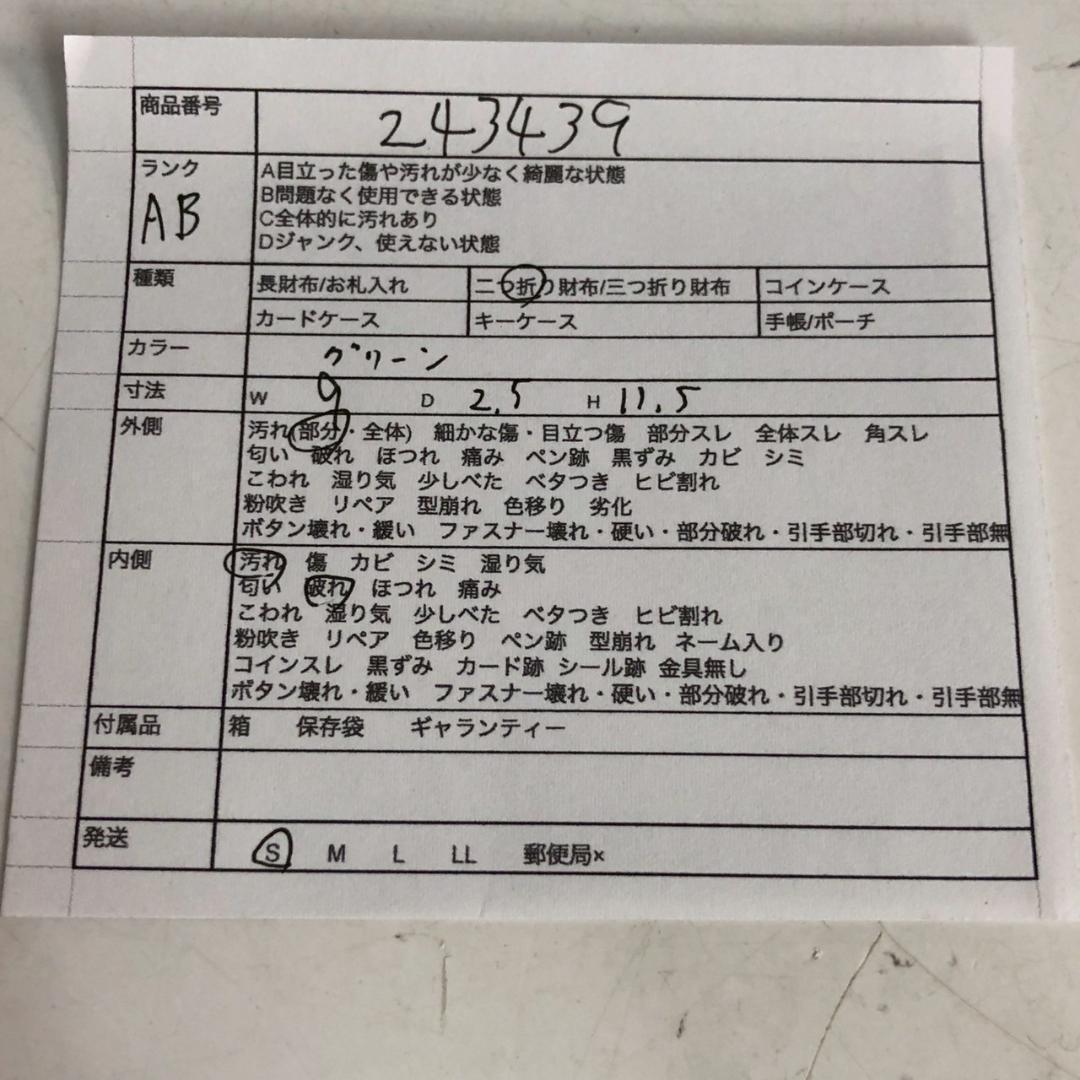 商品番号 243439
ランク A目立った傷や汚れが少なく綺麗な状態
AB B問題なく使用できる状態
C全体的に汚れあり
Dジャンク、使えない状態
種類 長財布/お札入れ 二つ折り財布/三つ折り財布 コインケース
カードケース キーケース 手帳/ポーチ
カラー グリーン
寸法 W 9 D 2.5 H 11.5
外側 汚れ(部分・全体) 細かな傷・目立つ傷 部分スレ 全体スレ 角スレ
匂い 破れ ほつれ 痛み ペン跡 黒ずみ カビ シミ
こわれ 湿り気 少しべた ベタつき ヒビ割れ
粉吹き リペア 型崩れ 色移り 劣化
ボタン壊れ・緩い ファスナー壊れ・硬い・部分破れ・引手部切れ・引手部無
内側 汚れ 傷 カビ シミ 湿り気
匂い 破れ ほつれ 痛み
こわれ 湿り気 少しべた ベタつき ヒビ割れ
粉吹き リペア 色移り ペン跡 型崩れ ネーム入り
コインスレ 黒ずみ カード跡 シール跡 金具無し
ボタン壊れ・緩い ファスナー壊れ・硬い・部分破れ・引手部切れ・引手部無
付属品 箱 保存袋 ギャランティー
備考
発送 S M L LL 郵便局×